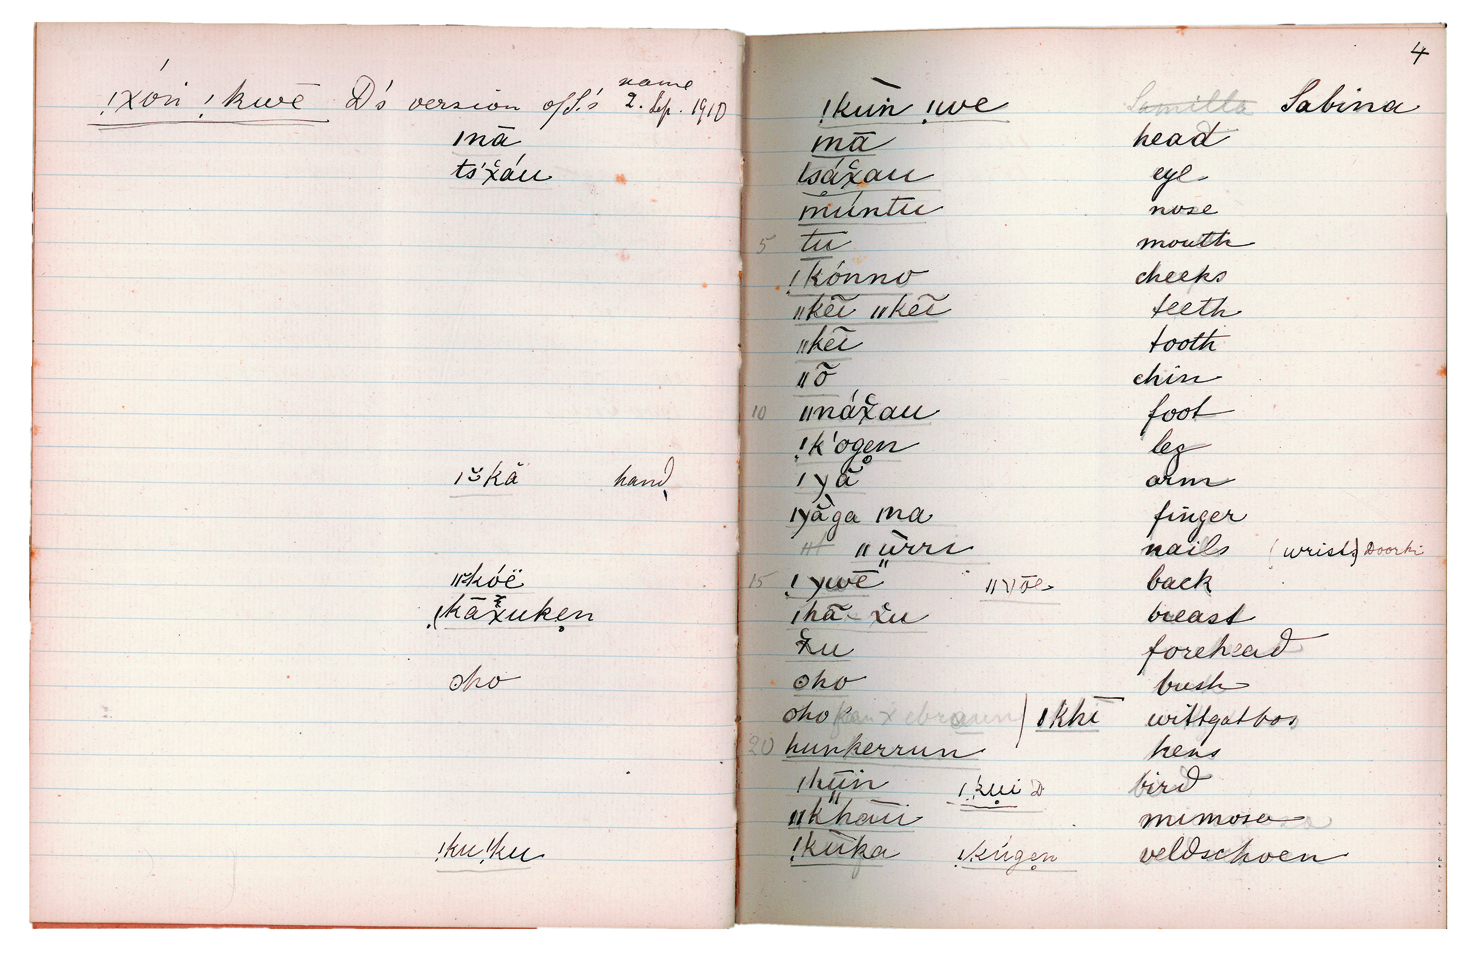 !χóń !kwē D's version of S.'s name
2. Sep. 1910
ınā
ts'χ̆áu
ıº̆kă hand
ııºkóë
!(kāχ̆uken̥
ʘho
!ku!ku
4
!kùn !we Sabina
mā head
tsáχ̆au eye
múntu nose
5 tu mouth
!kónno cheeks
ııkēī ııkēī teeth
ııkēī tooth
ııō chin
10 ıınáχ̆au foot
!k'ogen̥ leg
ıyā arm
ıyāga ma finger
ııürri nails (wrist) Doorki
15 !ywē ııyōe back
ıhā χ̆u breast
χ̆u forehead
ʘho bush
ʘho ) ıkhī wittgatboo
20 hunkerrun hens
ıkṳ̄in !kui D bird
ııkhāu mimosa
!kùka !kúgen̥ veldschoen